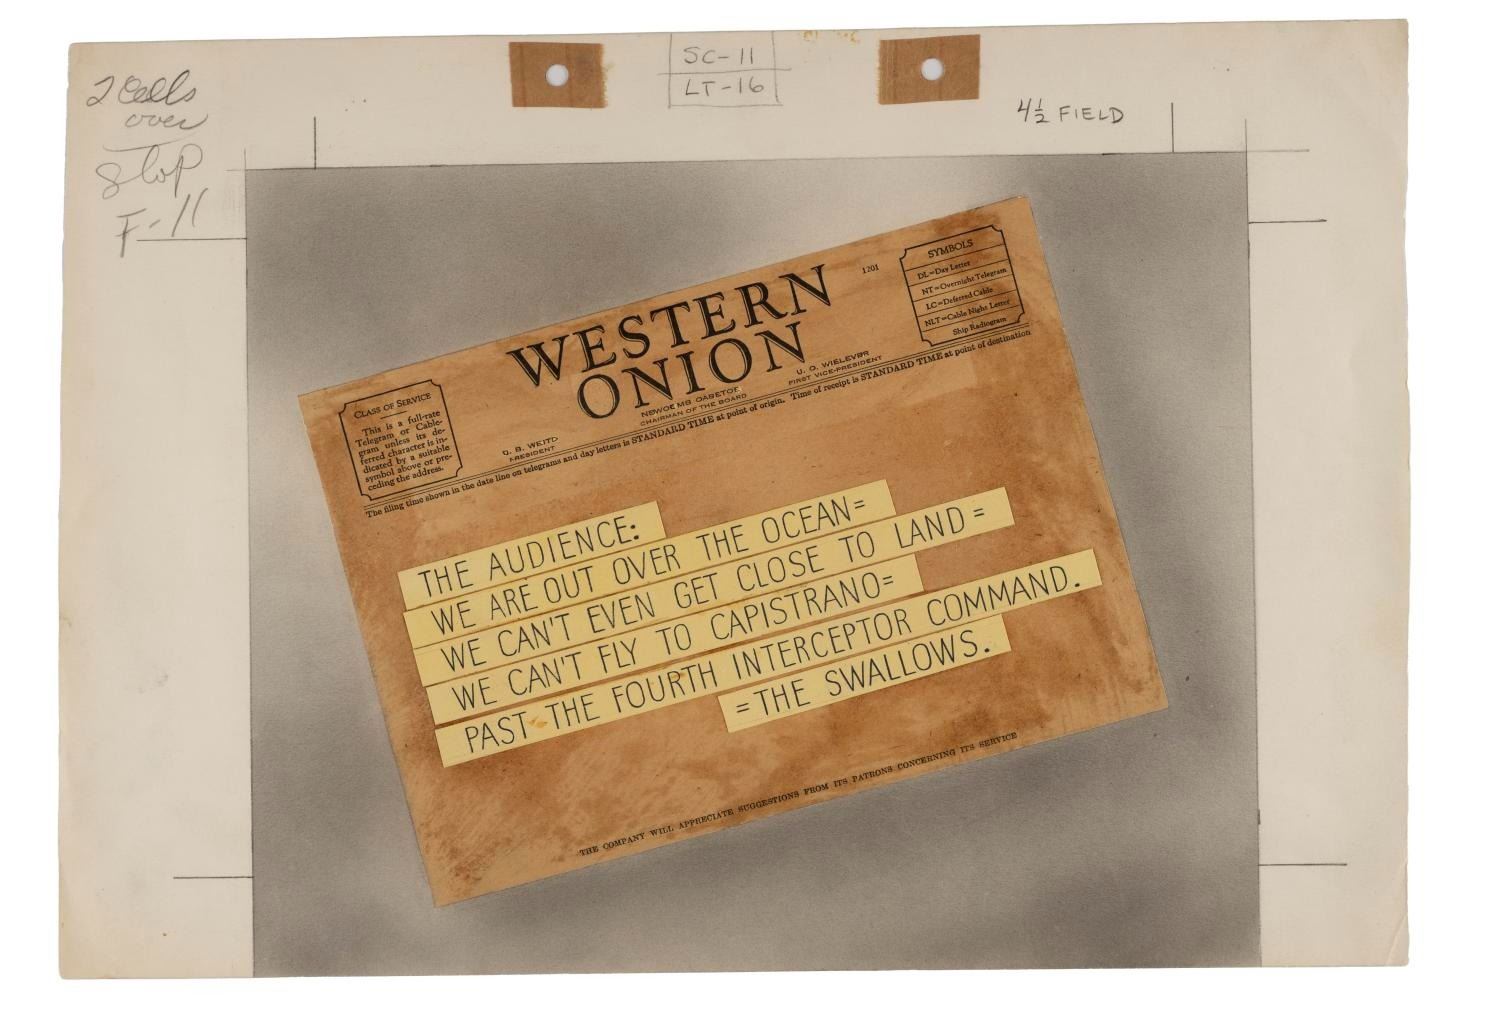 2 Cells
over
Stop
F-11
SC-11
LT-16
4½ FIELD
WESTERN
ONION
1201
SYMBOLS
DL=Day Letter
NT=Overnight Telegram
LC=Deferred Cable
NLT=Cable Night Letter
Ship Radiogram
CLASS OF SERVICE
This is a full-rate
Telegram or Cable-
gram unless its de-
ferred character is in-
dicated by a suitable
symbol above or pre-
ceding the address.
PRESIDENT
CHAIRMAN OF THE BOARD
U. O. WIELEVER
FIRST VICE-PRESIDENT
The filing time shown in the date line on telegrams and day letters is STANDARD TIME at point of origin. Time of receipt is STANDARD TIME at point of destination
THE AUDIENCE:
WE ARE OUT OVER THE OCEAN=
WE CAN'T EVEN GET CLOSE TO LAND=
WE CAN'T FLY TO CAPISTRANO=
PAST THE FOURTH INTERCEPTOR COMMAND.
=THE SWALLOWS.
THE COMPANY WILL APPRECIATE SUGGESTIONS FROM ITS PATRONS CONCERNING ITS SERVICE